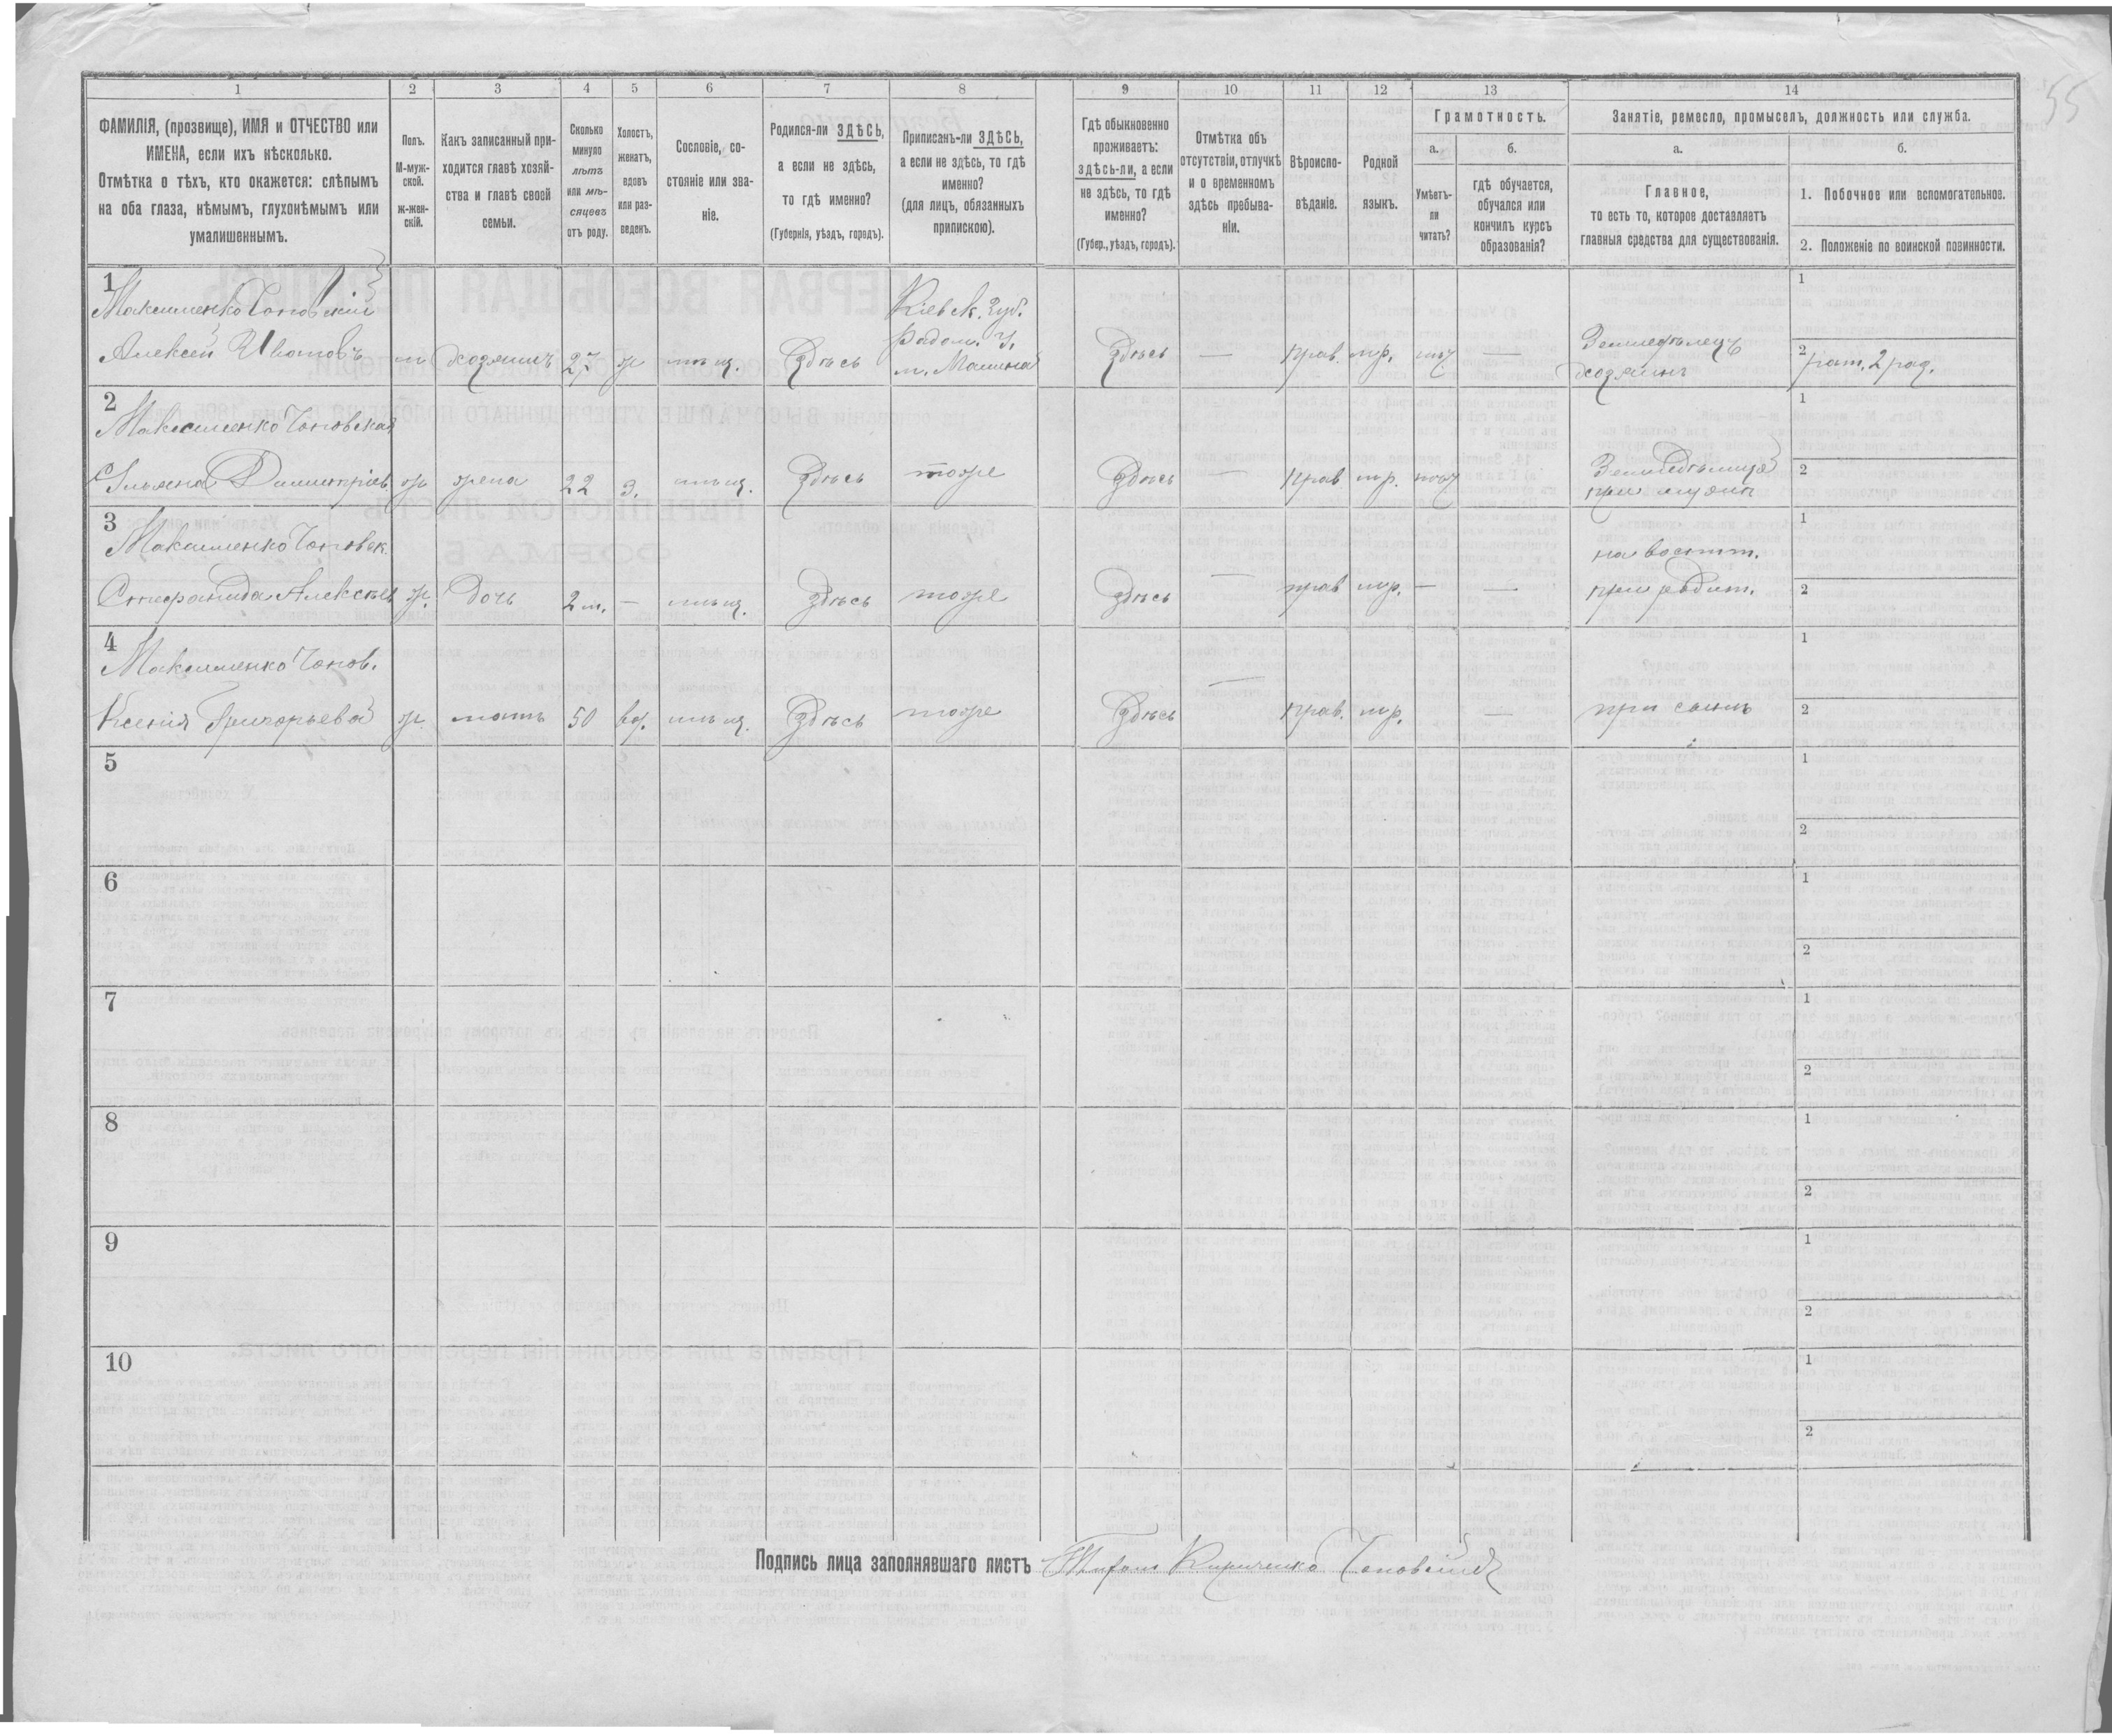 55
1 2 3 4 5 6 7 8 9 10 11 12 13 14
ФАМИЛІЯ, (прозвище), ИМЯ и ОТЧЕСТВО или
ИМЕНА, если ихъ нѣсколько.
Отмѣтка о тѣхъ, кто окажется: слѣпымъ
на оба глаза, нѣмымъ, глухонѣмымъ или
умалишеннымъ.
Полъ.
М-муж-
ской.
ж-жен-
скій.
Какъ записанный при-
ходится главѣ хозяй-
ства и главѣ своей
семьи.
Сколько
минуло
лѣтъ
или мѣ-
сяцевъ
отъ роду.
Холостъ,
женатъ,
вдовъ
или раз-
веденъ.
Сословіе, со-
стояніе или зва-
ніе.
Родился-ли ЗДѢСЬ,
а если не здѣсь,
то гдѣ именно?
(Губернія, уѣздъ, городъ).
Приписанъ-ли ЗДѢСЬ,
а если не здѣсь, то гдѣ
именно?
(для лицъ, обязанныхъ
припискою).
Гдѣ обыкновенно
проживаетъ:
здѣсь-ли, а если
не здѣсь, то гдѣ
именно?
(Губер., уѣздъ, городъ).
Отмѣтка объ
отсутствіи, отлучкѣ
и о временномъ
здѣсь пребыва-
ніи.
Вѣроиспо-
вѣданіе.
Родной
языкъ.
Грамотность.
а.
Умѣетъ-
ли
читать?
б.
гдѣ обучается,
обучался или
кончилъ курсъ
образованія?
Занятіе, ремесло, промыселъ, должность или служба.
а.
Главное,
то есть то, которое доставляетъ
главныя средства для существованія.
б.
1. Побочное или вспомогательное.
2. Положеніе по воинской повинности.
1
Максименко Чоповскій
Кіевск. Губ.
Радом. У.
Алексѣй Ивановъ м хозяинъ 27 ж мѣщ. Здѣсь м. Малина Здѣсь — прав. мр. нѣт — Земледѣлецъ
хозяинъ
1
2 рат. 2 раз.
2
Максименко Чоповская
Ульяна Димитріев ж жена 22 з. мѣщ. Здѣсь тоже Здѣсь — прав мр. нѣт Земледѣлица
при мужѣ
1
2
3
Максименко Чоповск.
Степанида Алексѣев ж. Дочь 2 м. — мѣщ. Здѣсь тоже Здѣсь — прав мр. — — на воспит.
при родит.
1
2
4
Максименко Чопов.
Ксенія Григорьева ж. мать 50 вд. мѣщ. Здѣсь тоже Здѣсь — прав. мр. — при сынѣ
1
2
5
1
2
6
1
2
7
1
2
8
1
2
9
1
2
10
1
2
Подпись лица заполнявшаго листъ Кириченко Чоповскій